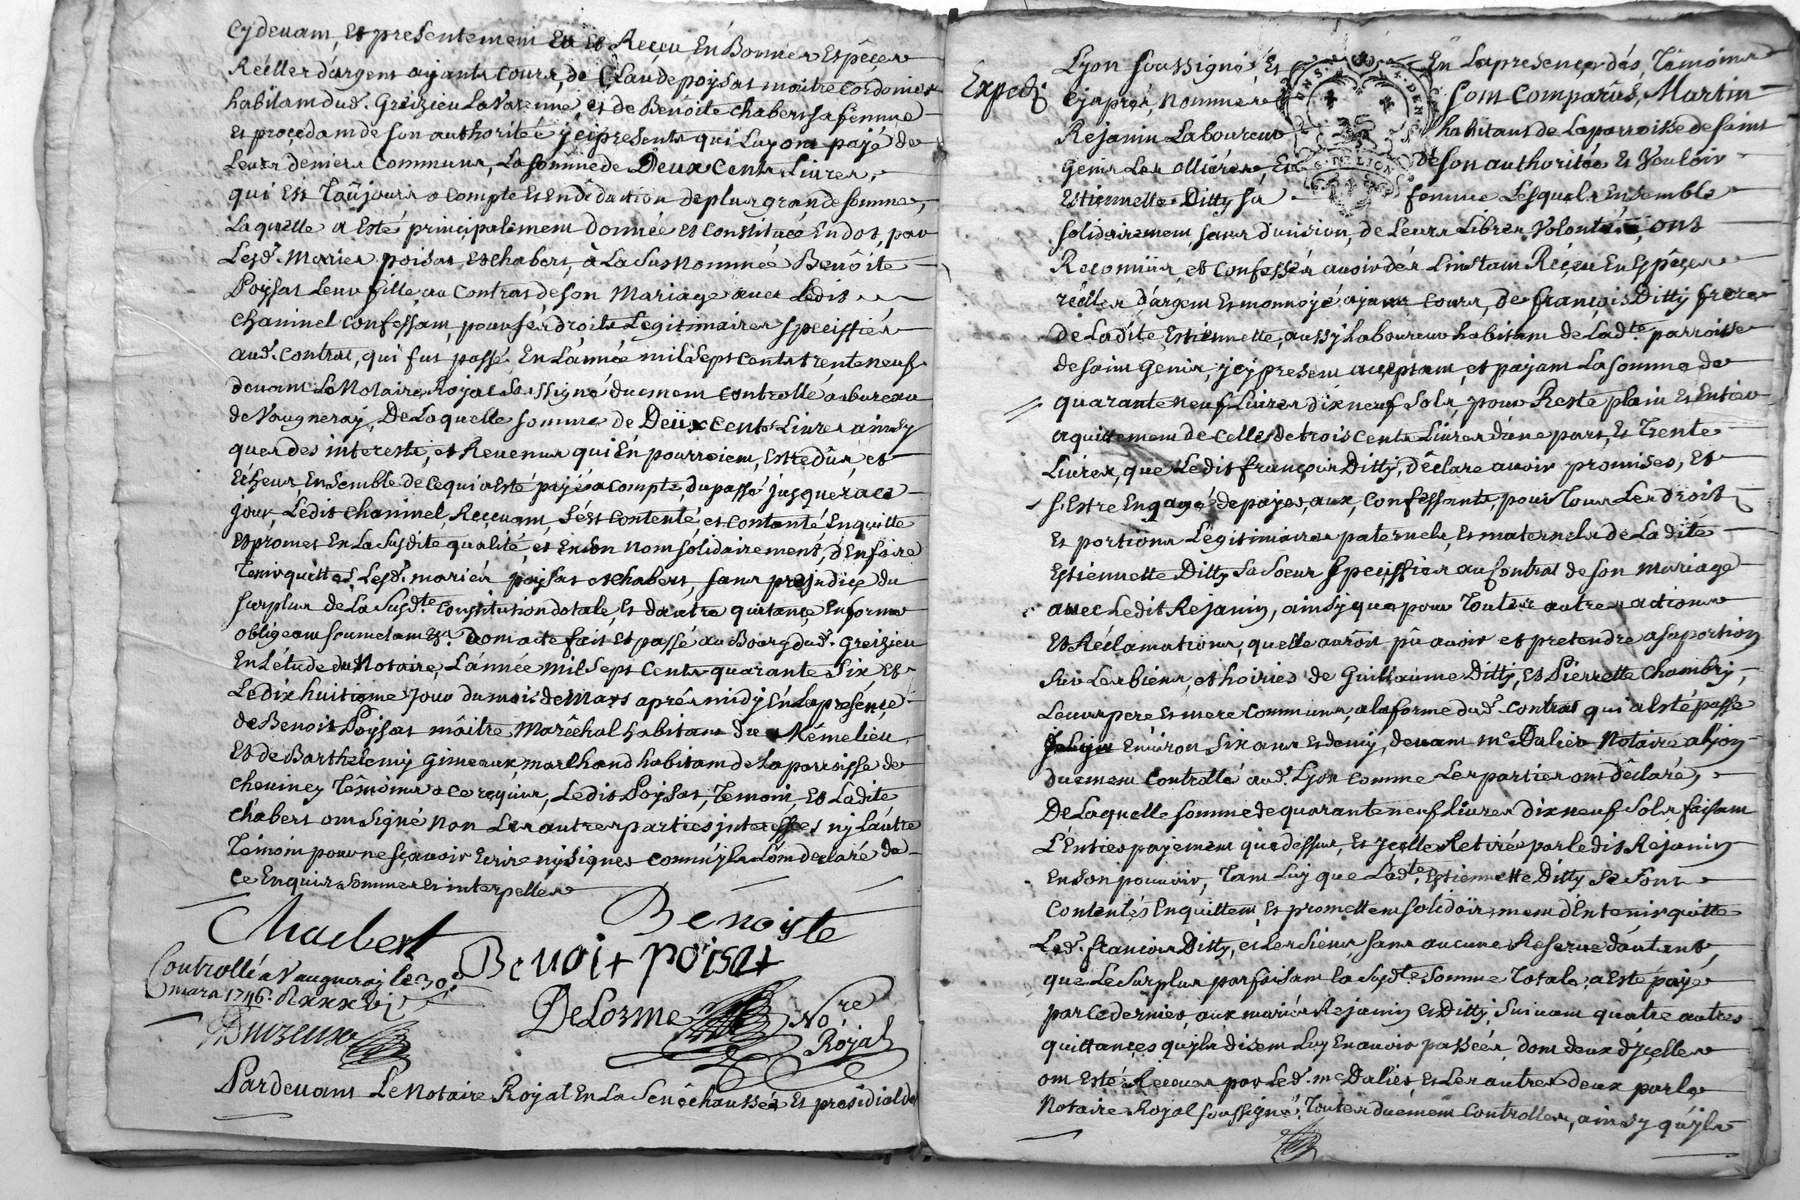 Cydevam, Et presentement Eu Et Reçeu En Bonnes Espêces
Réelles d'argent ayants cours, de Claude poysat maitre Cordonier
habitam dud. Greizieu La Varenne, et de Benoite Chabert sa femme
Et proçedam de son authorité jci presents qui Luy ont payé de
Leurs deniers Communs, La somme de Deux Cents Livres,
qui Est Toûjours a Compte Et En déduction de plus grande somme,
Laquelle a Esté principalement donnée et Constituée En dot, par
Lesd. Mariés poisat, Et chabert, à La Susnommée Benôite
Poysat Leur fille, au Contrat de son Mariage avec Ledit
Chaninel Confessam, pour ses droits Légitimaires speciffiés
aud. Contrat, qui fut passé En L'année mil sept cents trente neuf
devant Le Notaire Royal soussigné duement Controllé au bureau
de Vaugneray, De Laquelle somme de Deux Cents Livres ainsy
que des interests, et Revenus qui En pourroiem, Estre dûs, et
Echeus Ensemble de Ce qui a Esté payé a Compte, du passé jusques a Ce
jour, Ledit Chaninel, Reçevam, s'est Contenté, et Contanté En quitte
Et promet En La Susdite qualité, et En son nom solidairement, d'En faire
Tenir quittes Lesd. mariés poysat et chabert, sans prejudice du
surplus de La Susd.te Constitution dotale, Et d'autre quitance, En forme
obligeam soumetam Et.a Dom acte fait Et passé au Bourg dud. Greizieu
En L'étude du Notaire, L'année Mil Sept Cents quarante Six Et
Le dix huitieme Jour du mois de Mars aprés midy En La presençe
de Benoit Poysat mâitre Marêchal habitam du Mémelieu
Et de Barthelemy Gimeaux marchand habitam de La parroisse de
Cheviney Têmoins a Ce requis, Ledit Poysat, Temoin, Et Ladite
Chabert om signé non Les autres parties interessées ny L'autre
Témoin pour ne sçavoir Ecrire ny signer comm'yls L'om declaré de
Ce Enquis Sommés Et interpellés
Chabert Benoiste
Benoit poisat
Controllé a Vaugneray le 30e
mars 1746.
DeLorme No.re
Royal
Pardevant Le Notaire Royal En La Senêchaussée Et presidial de
Exped.
Lyon soussigné, Et En La presençe des Têmoins
Cy aprés, Nommés som Comparûs, Martin
Rejanin Laboureur habitant de La parroisse de saint
Genis Les ollières, Et de son authoritée Et Vouloir
Estiennette Ditty sa femme Lesquels Ensemble
solidairement sans division, de Leurs Libres Volontés, ont
Reconnüs et Confessés avoir dés L'instam Reçeu En Espêces
réelles d'argent Et monnoyé ayant Cours, De françois Ditty frere
de Ladite Estiennette, aussy Laboureur habitam de Lad.te parroisse
de saint Genis jcy present acceptam, et payam La somme de
quarante neuf Livres dix neuf sols, pour Reste plain Et Entier
aquittement de Celles de trois Cents Livres dune part, Et Trente
Livres, que Ledit françois Ditty, Déclare avoir promises, Et
s'Estre Engagé de payer, aux Confessants, pour Tous Les droits
Et portions Légitimaires paternels, Et maternels de Ladite
Estiennette Ditty sa Soeur speciffiés au Contrat de son Mariage
avec Ledit Rejanin, ainsy que pour Toutes autres actions
Et Réclamations, quelle auroit pû avoir et pretendre a sa portion
sur Les biens, et hoiries de Guillaume Ditty, Et Pierrette Chambry,
Leurs pere Et mere Communs, a la forme dud. Contrat qui a Esté passé
Environ Six ans Et demy, devant Me Dalier Notaire a Lyon
duement Controllé aud. Lyon comme Les parties ont Déclaré,
De Laquelle somme de quarante neuf Livres dix neuf sols faisam
L'Entier payement que dessus, Et jcelle Retirée par Ledit Rejanin
En son pouvoir, Tam Luy que Lad.te Estiennette Ditty Se Sont
Contentés En quittem, Et promettem solidairement d'En tenir quitte
Led. françois Ditty, et Les siens, sans aucune Reserve d'autant
que Le Surplus parfaisam La Susd.te Somme Totale, a Esté payé
par Ce dernier, aux mariés Rejanin Et Ditty suivant quatre autres
quittançes quyls disem Luy En avoir passées, dom deux d'jcelles
om Esté Reçeues par Led. Me Dalier Et Les autres deux par le
Notaire Royal soussigné, Toutes duement Controllées, ainsy quyls